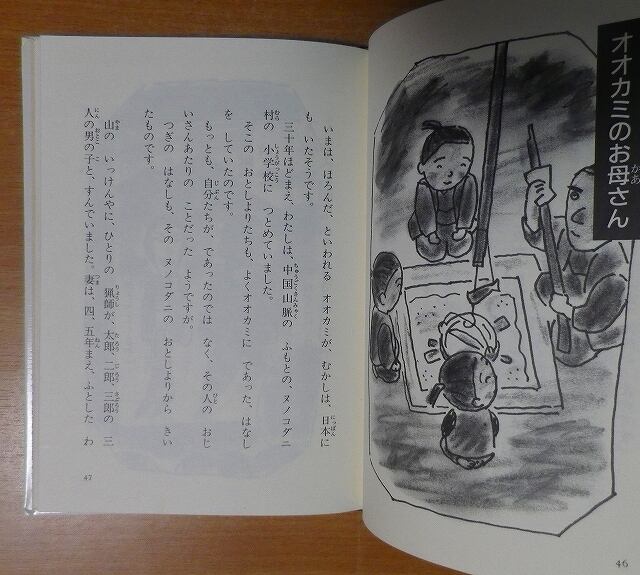 オオカミのお母さん
46
いまは、ほろんだ、といわれる オオカミが、むかしは、日本に
も いたそうです。
三十年ほどまえ、わたしは、中国山脈の ふもとの、ヌノコグニ
村の 小学校に つとめていました。
そこの おとしよりたちも、よくオオカミに であった、はなし
を していたのです。
もっとも、自分たちが、であったのでは なく、その人の おじ
いさんあたりの ことだった ようですが。
つぎの はなしも、その ヌノコグニの おとしよりから きい
たものです。
山の いっけんやに、ひとりの 猟師が、太郎、二郎、三郎の 三
人の男の子と、すんでいました。妻は、四、五年まえ、ふとした わ
47